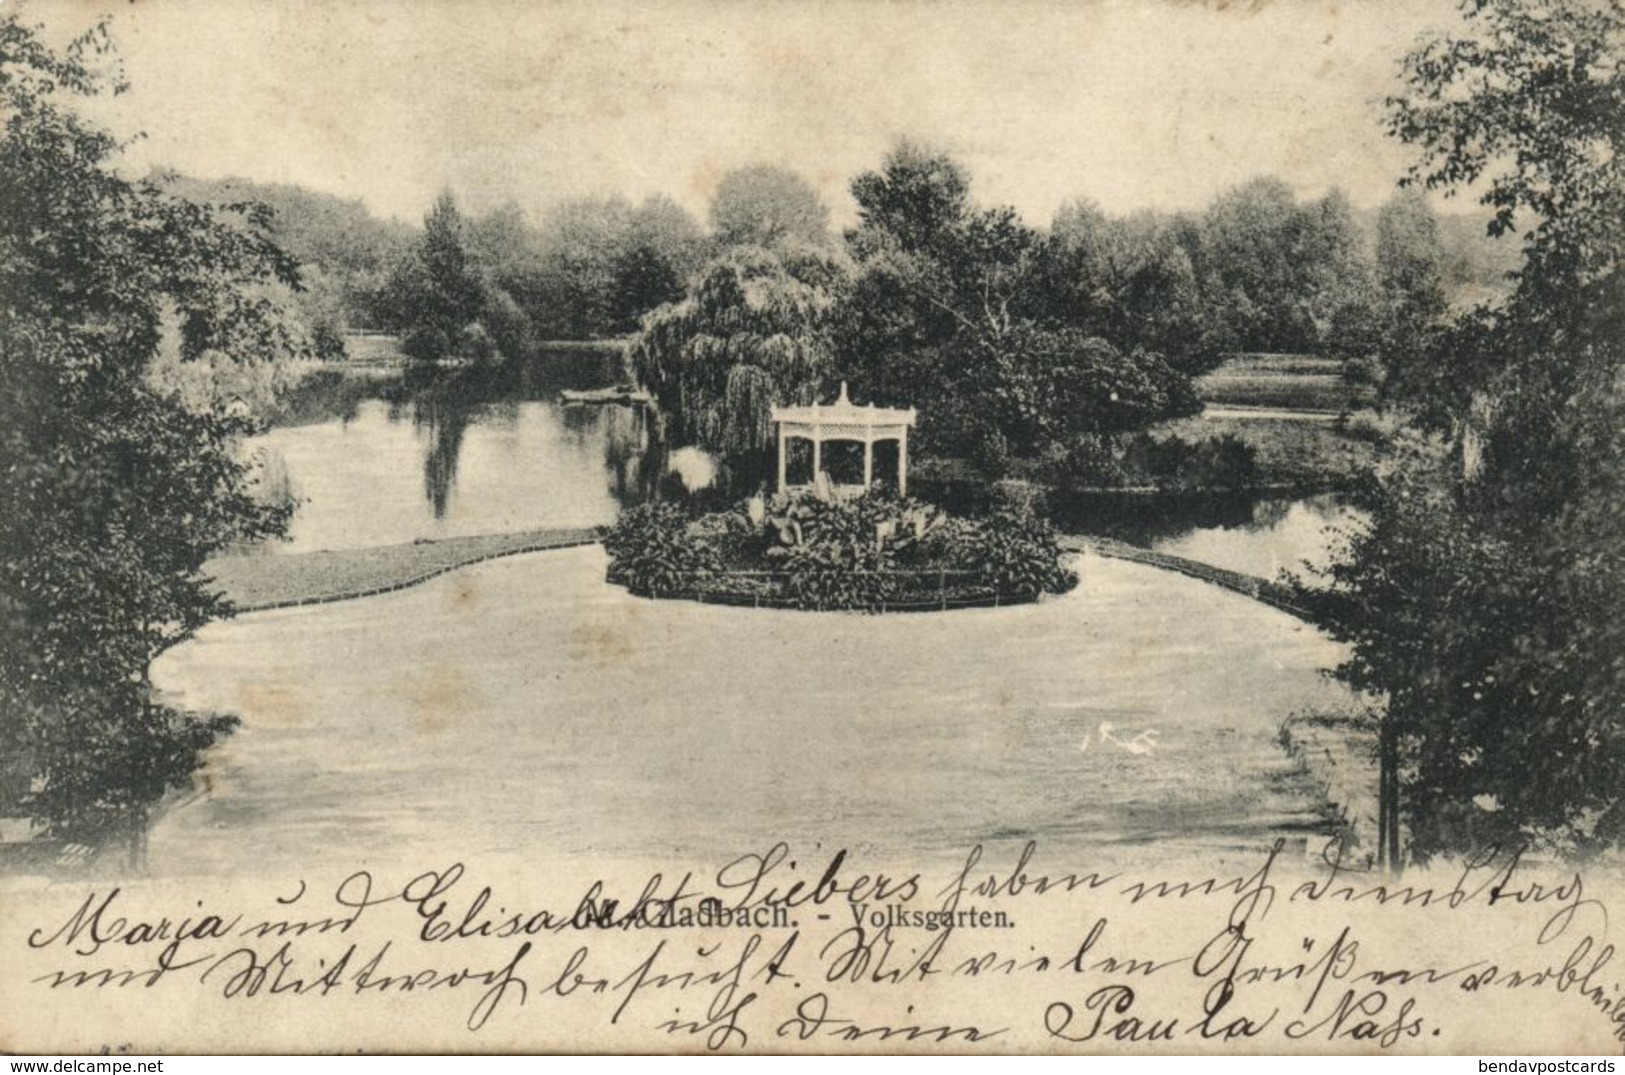 Maria und Elisabeth Siebers haben mich Dienstag
M.-Gladbach. - Volksgarten.
und Mittwoch besucht. Mit vielen Grüßen verbleibe
ich Deine Paula Nass.
www.delcampe.net
bendavpostcards